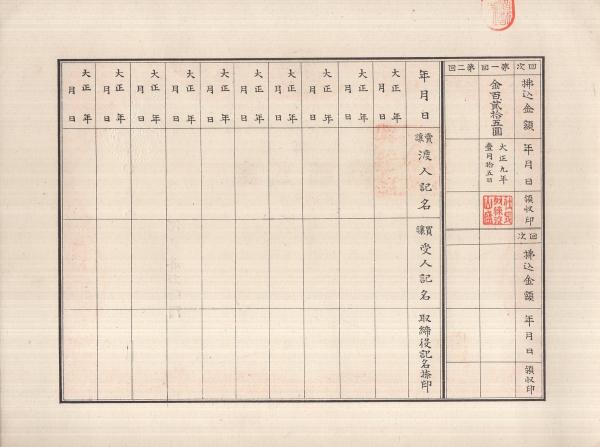 回次
第一回
第二回
拂込金額
金百貳拾五圓
年月日
大正九年
壹月拾五日
領収印
回次
拂込金額
年月日
領収印
年月日
賣讓渡人記名
買讓受人記名
取締役記名捺印
大正 年
月 日
大正 年
月 日
大正 年
月 日
大正 年
月 日
大正 年
月 日
大正 年
月 日
大正 年
月 日
大正 年
月 日
大正 年
月 日
大正 年
月 日